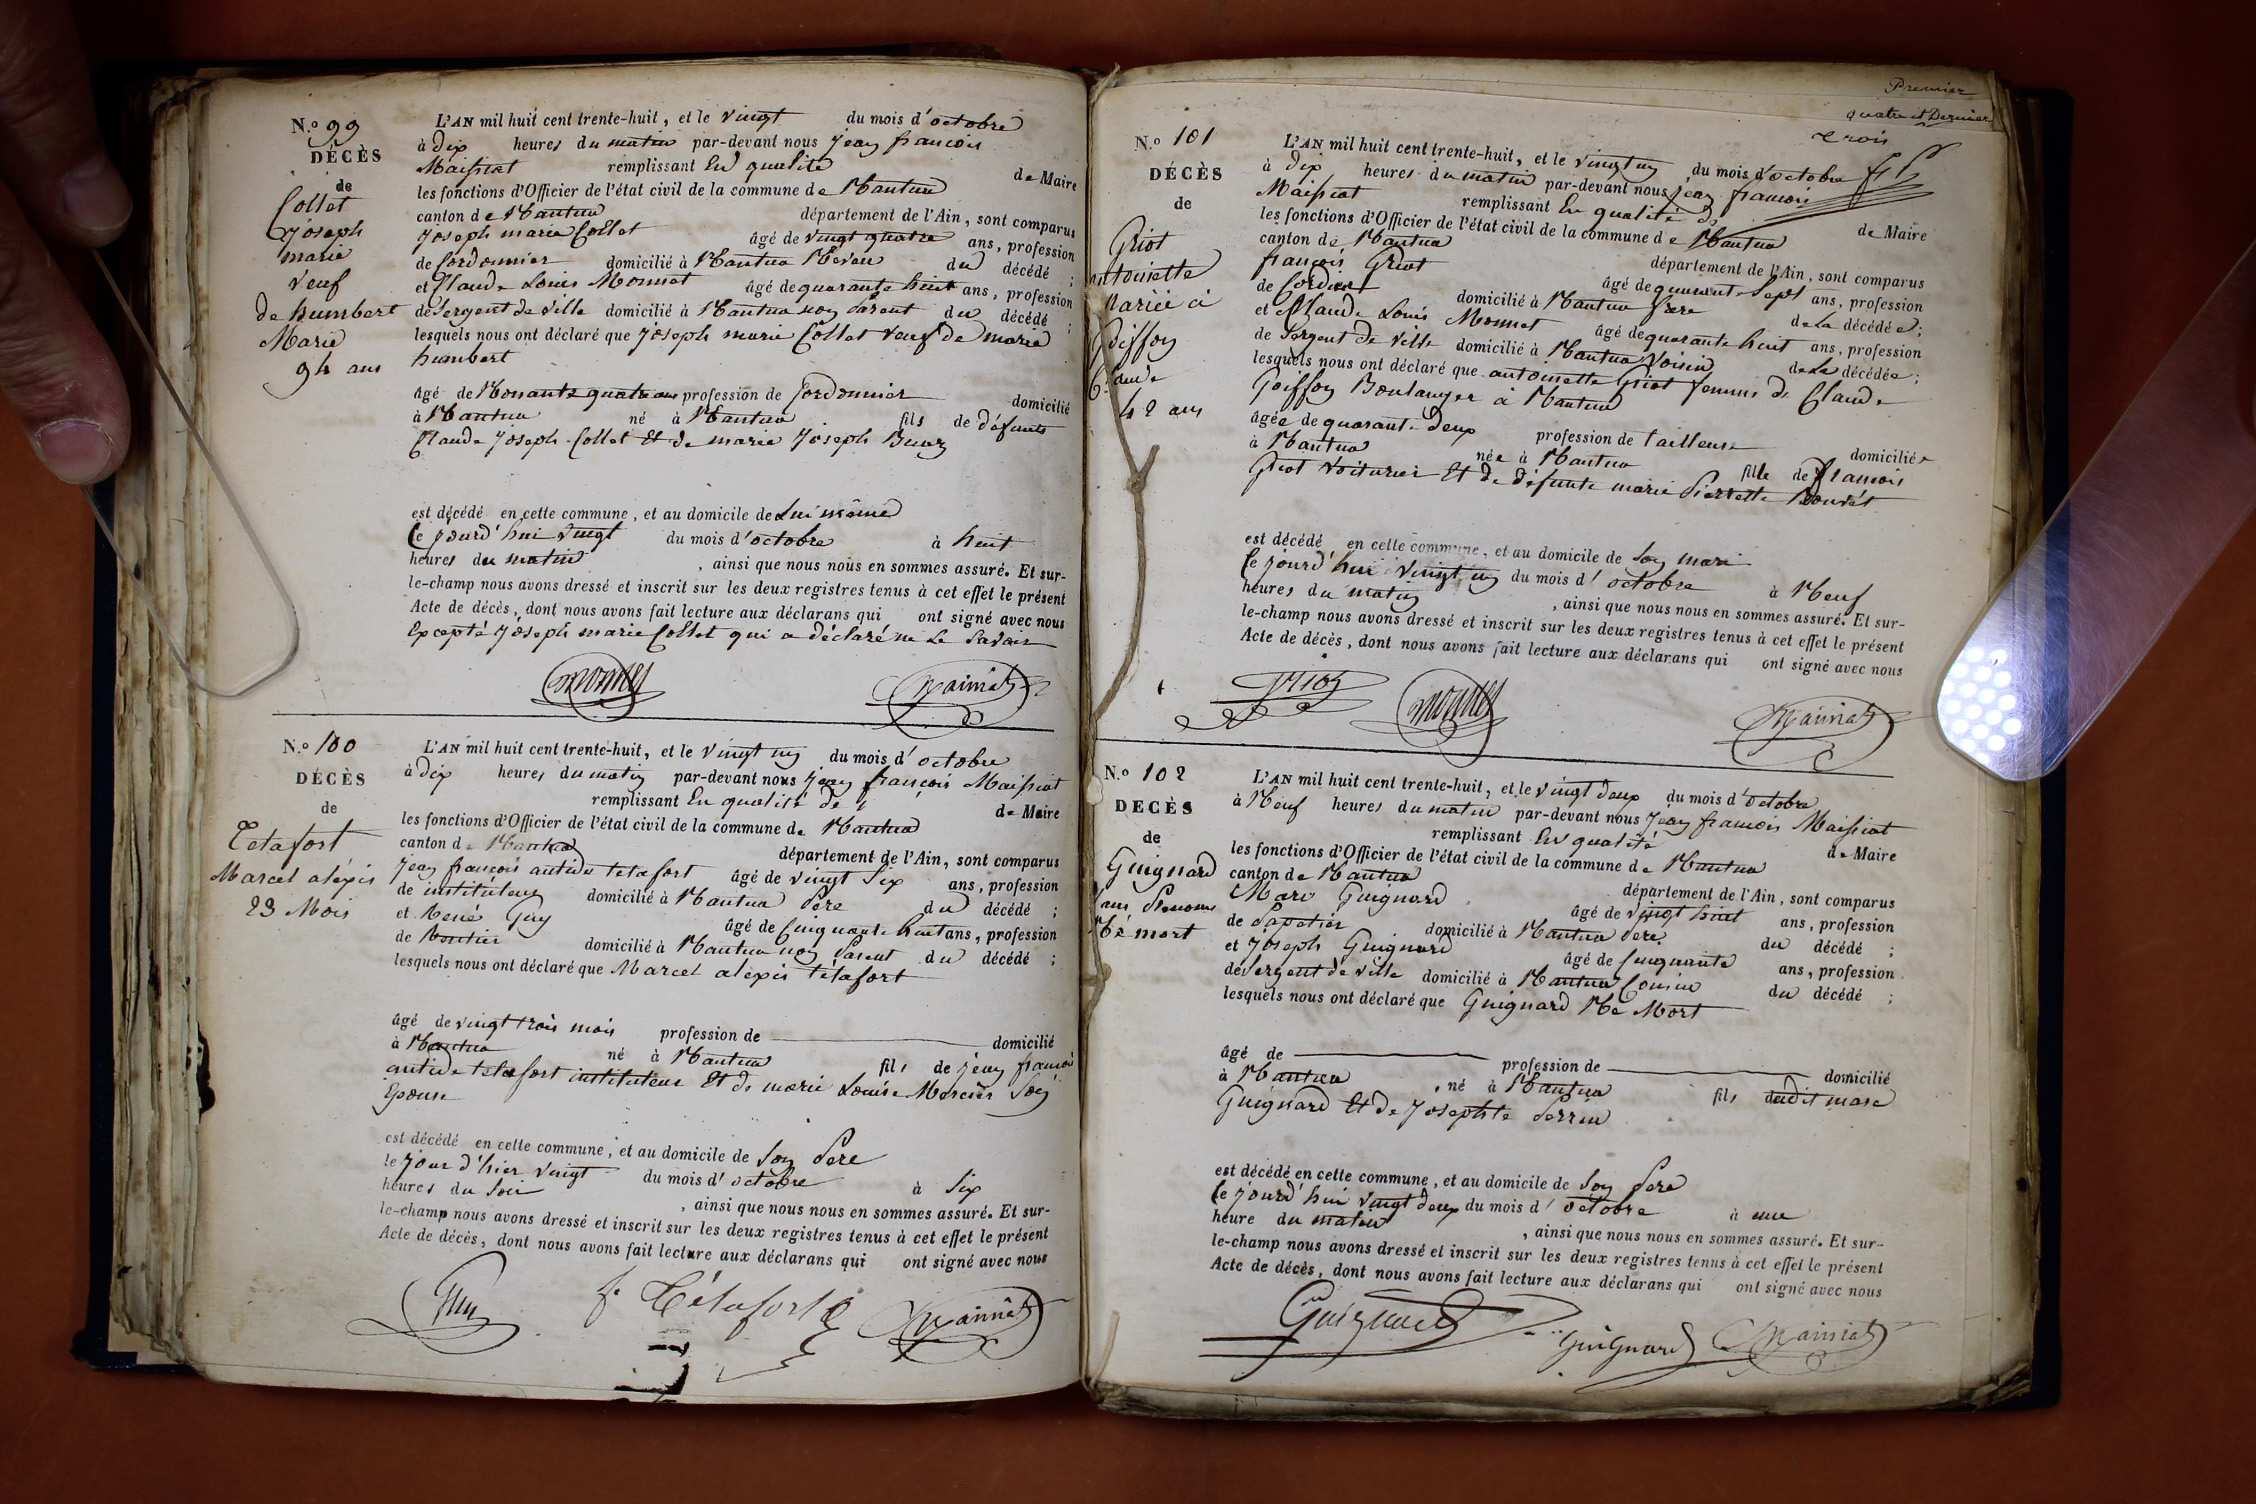 N.° 99
DÉCÈS
de
Collet
Joseph
marie
Veuf
de humbert
Marie
94 ans
L'AN mil huit cent trente-huit, et le vingt du mois d'octobre
à dix heures du matin par-devant nous jean francois
Maissiat remplissant En qualité de Maire
les fonctions d'Officier de l'état civil de la commune de Nantua
canton de Nantua département de l'Ain, sont comparus
Joseph marie Collet âgé de vingt quatre ans, profession
de Cordonnier domicilié à Nantua Neveu du décédé ;
et Claude Louis Monnet âgé de quarante huit ans, profession
de Sergent de ville domicilié à Nantua non Parent du décédé ;
lesquels nous ont déclaré que Joseph marie Collet veuf de marie
humbert
âgé de Nonante quatre ans profession de Cordonnier domicilié
à Nantua né à Nantua fils de défunts
Claude Joseph Collet Et de marie Joseph
est décédé en cette commune, et au domicile de Lui même
Ce jourd'hui vingt du mois d'octobre à huit
heures du matin , ainsi que nous nous en sommes assuré. Et sur-
le-champ nous avons dressé et inscrit sur les deux registres tenus à cet effet le présent
Acte de décès, dont nous avons fait lecture aux déclarans qui ont signé avec nous
Excepté Joseph marie Collet qui a déclaré ne Le Savoir
Monnet Maissiat
N.° 100
DÉCÈS
de
Tetafort
Marcel aléxis
23 Mois
L'AN mil huit cent trente-huit, et le vingt un du mois d'octobre
à dix heures du matin par-devant nous jean françois Maissiat
remplissant En qualité de de Maire
les fonctions d'Officier de l'état civil de la commune de Nantua
canton de Nantua département de l'Ain, sont comparus
jean françois antide tetafort âgé de vingt Six ans, profession
de instituteur domicilié à Nantua Pere du décédé ;
et René Guy âgé de Cinquante huit ans, profession
de domicilié à Nantua non Parent du décédé ;
lesquels nous ont déclaré que Marcel alexis tétafort
âgé de vingt trois mois profession de domicilié
à Nantua né à Nantua fils de jean francois
antide tetafort instituteur Et de marie Louise Mercier Son
Epouse
est décédé en cette commune, et au domicile de Son Pere
le jour d'hier vingt du mois d'octobre à Six
heures du Soir , ainsi que nous nous en sommes assuré. Et sur-
le-champ nous avons dressé et inscrit sur les deux registres tenus à cet effet le présent
Acte de décès, dont nous avons fait lecture aux déclarans qui ont signé avec nous
Guy f. Tétafort Maissiat
Premier
quatre et Dernier
trois
N.° 101
DÉCÈS
de
Griot
antoinette
Mariée à
Goiffon
Claude
42 ans
L'AN mil huit cent trente-huit, et le vingt un du mois d'octobre
à dix heures du matin par-devant nous jean francois
Maissiat remplissant En qualité de de Maire
les fonctions d'Officier de l'état civil de la commune de Nantua
canton de Nantua département de l'Ain, sont comparus
françois Griot âgé de quarante Sept ans, profession
de Cordier domicilié à Nantua frere de La décédée ;
et Claude Louis Monnet âgé de quarante huit ans, profession
de Sergent de ville domicilié à Nantua Voisin de La décédée ;
lesquels nous ont déclaré que antoinette Griot femme de Claude
Goiffon Boulanger à Nantua
âgée de quarante deux profession de tailleuse domiciliée
à Nantua née à Nantua fille de francois
Griot Voiturier Et de défunte marie Pierrette
est décédé en cette commune, et au domicile de Son mari
Ce jourd'hui vingt un du mois d'octobre à Neuf
heures du matin , ainsi que nous nous en sommes assuré. Et sur-
le-champ nous avons dressé et inscrit sur les deux registres tenus à cet effet le présent
Acte de décès, dont nous avons fait lecture aux déclarans qui ont signé avec nous
Griot Monnet Maissiat
N.° 102
DÉCÈS
de
Guignard
Sans Prenoms
Né mort
L'AN mil huit cent trente-huit, et le vingt deux du mois d'octobre
à Neuf heures du matin par-devant nous jean francois Maissiat
remplissant En qualité de Maire
les fonctions d'Officier de l'état civil de la commune de Nantua
canton de Nantua département de l'Ain, sont comparus
Marc Guignard âgé de vingt huit ans, profession
de Papetier domicilié à Nantua Pere du décédé ;
et Joseph Guignard âgé de Cinquante ans, profession
de Sergent de ville domicilié à Nantua Cousin du décédé ;
lesquels nous ont déclaré que Guignard Né Mort
âgé de profession de domicilié
à Nantua né à Nantua fils dudit marc
Guignard Et de Josephte Perrin
est décédé en cette commune, et au domicile de Son Pere
Ce jourd'hui vingt deux du mois d'octobre à une
heure du matin , ainsi que nous nous en sommes assuré. Et sur-
le-champ nous avons dressé et inscrit sur les deux registres tenus à cet effet le présent
Acte de décès, dont nous avons fait lecture aux déclarans qui ont signé avec nous
Guignard Guignard Maissiat